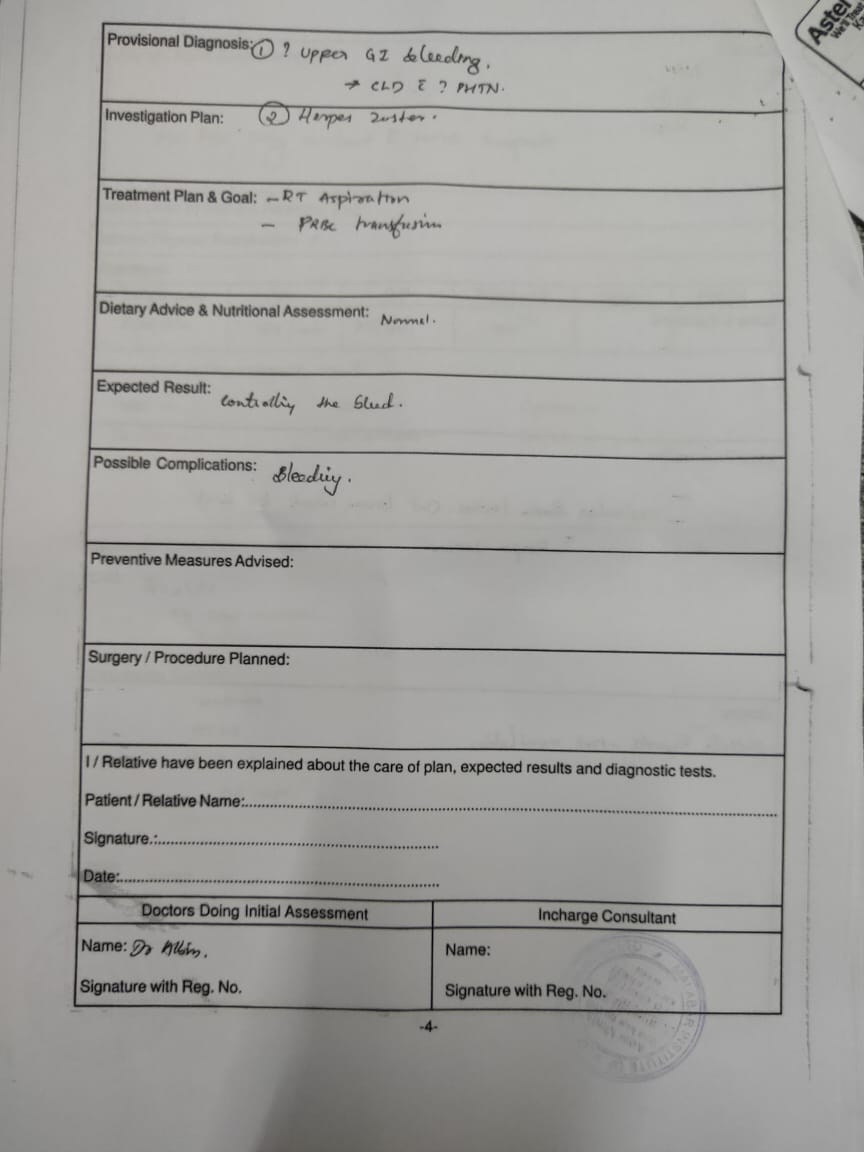 Aster
We'll Treat
Provisional Diagnosis: ① ? Upper GI bleeding.
→ CLD c̄ ? PHTN.
Investigation Plan: ② Herpes Zoster.
Treatment Plan & Goal: - RT Aspiration
- PRBC transfusion
Dietary Advice & Nutritional Assessment: Normal.
Expected Result: Controlling the bleed.
Possible Complications: Bleeding.
Preventive Measures Advised:
Surgery / Procedure Planned:
I / Relative have been explained about the care of plan, expected results and diagnostic tests.
Patient / Relative Name:
Signature.:
Date:
Doctors Doing Initial Assessment
Incharge Consultant
Name: Dr
Name:
Signature with Reg. No.
Signature with Reg. No.
-4-
MALABAR INSTITUTE OF